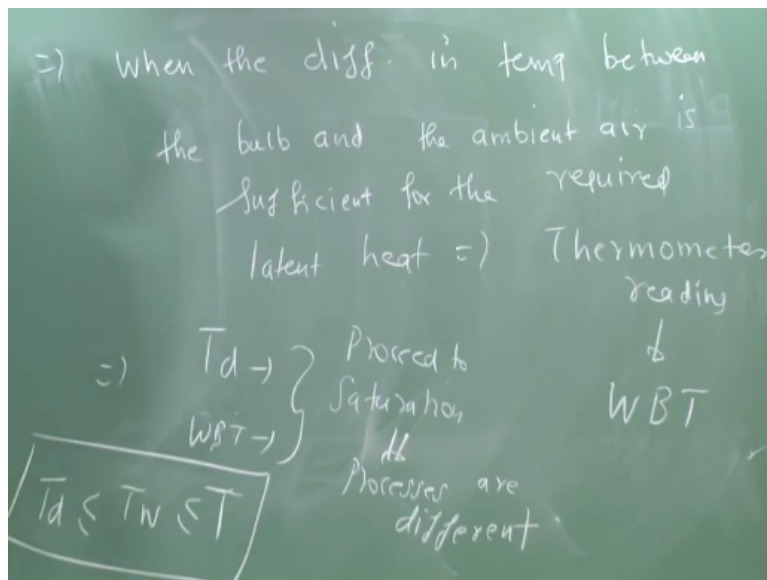 =) When the diff. in temp between
the bulb and the ambient air is
sufficient for the required
latent heat =) Thermometer
reading
↓
WBT
=) Td → } Proceed to
WBT → } Saturation
⇓
Processes are
different
Td ≤ Tw ≤ T